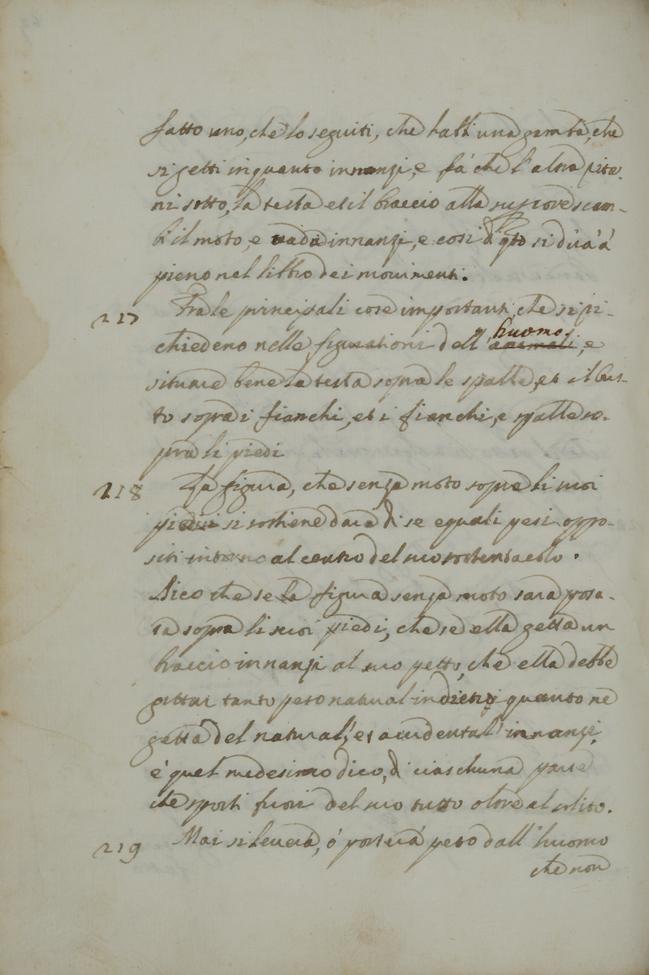 fatto uno, che lo seguiti, che habbi una gamba, che
si getti inquanto innanzi, e fà che l'altra rito.
ni sotto, la testa et il braccio alla superiore scam-
bi il moto, e vada innanzi, e così di qsto si dirà à
pieno nel libro dei movimenti.
217 Fra le principali cose importanti, che si ri-
chiedeno nelle figurationi dell' animali huomo, e
situare bene la testa sopra le spalle, et il bus-
to sopra i fianchi, et i fianchi, e spalle so-
pra li piedi
218 La figura, che senza moto sopra li suoi
piedi si sostiene darà di se equali pesi oppo-
siti intorno al centro del suo sostentacolo.
Dico che se la figura senza moto sarà posa-
ta sopra li suoi piedi, che se ella getta un
braccio innanzi al suo petto, che ella debbe
gittar tanto peso natural indietro quanto ne
getta del natural, et accidental innanzi,
e quel medesimo dico, di ciaschuna parte
che sporti fuori del suo tutto oltre al solito.
219 Mai si leverà, ò porterà peso dall' huomo
che non